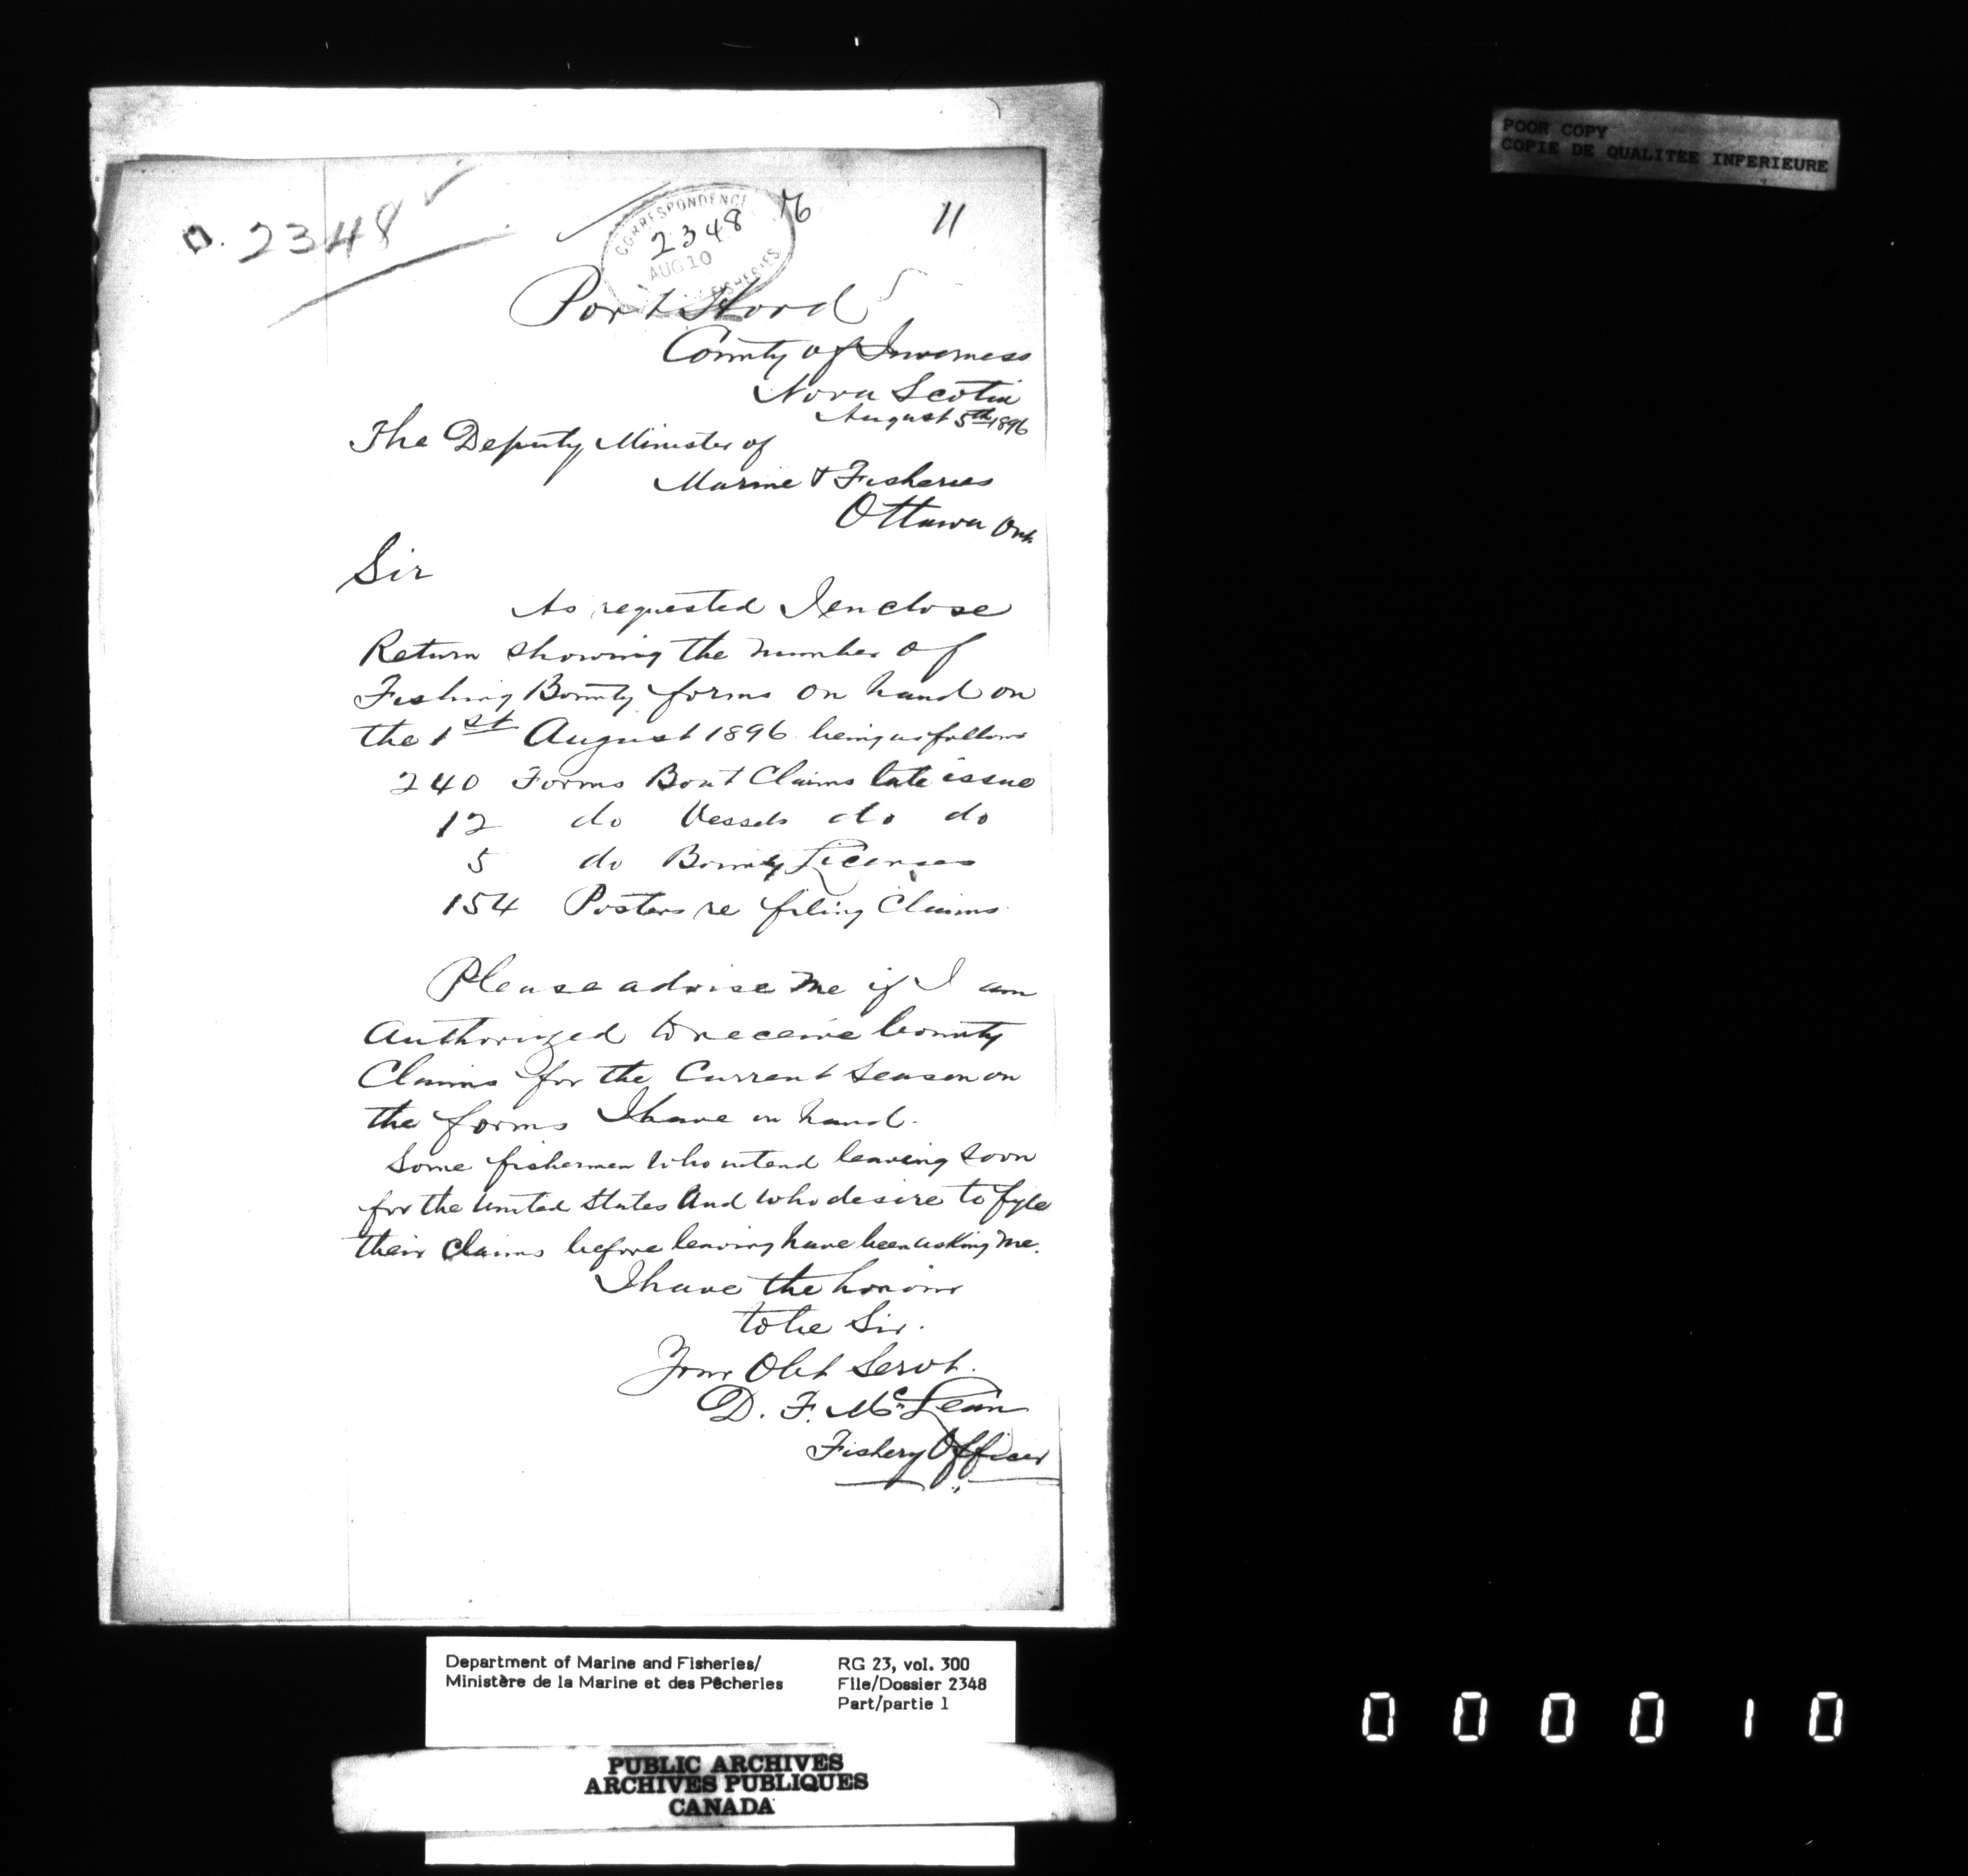 POOR COPY
COPIE DE QUALITÉE INFERIEURE
D. 2348
CORRESPONDENCE
2348
AUG 10
FISHERIES
76
11
Port Hood
County of Inverness
Nova Scotia
August 5th 1896
The Deputy Minister of
Marine & Fisheries
Ottawa Ont.
Sir
As requested I enclose
Return showing the number of
Fishing Bounty forms on hand on
the 1st August 1896 being as follows
240 Forms Boat Claims late issue
12 do Vessels do do
5 do Bounty Licenses
154 Posters re filing Claims
Please advise me if I am
Authorized to receive bounty
Claims for the Current Season on
the forms I have on hand.
Some fishermen who intend leaving soon
for the United States and who desire to fyle
their Claims before leaving have been asking me.
I have the honour
to be Sir.
Your Obt Servt.
D. F. McLean
Fishery Officer
Department of Marine and Fisheries/
Ministère de la Marine et des Pêcheries
RG 23, vol. 300
File/Dossier 2348
Part/partie 1
PUBLIC ARCHIVES
ARCHIVES PUBLIQUES
CANADA
000010